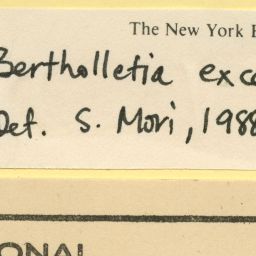 The New York B
Bertholletia exce
Det. S. Mori, 1988
ONAL